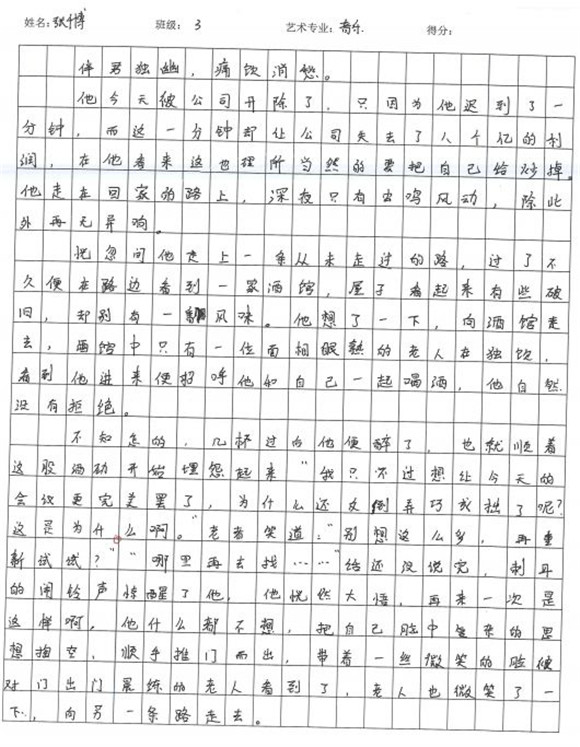 姓名：张博 班级：3 艺术专业：音乐 得分：
伴君独幽，痛饮消愁。
他今天被公司开除了，只因为他迟到了一
分钟，而这一分钟却让公司失去了八个亿的利
润，在他看来这也理所当然的要把自己给炒掉。
他走在回家的路上，深夜只有虫鸣风动，除此
外再无异响。
恍忽间他走上一条从未走过的路，过了不
久便在路边看到一家酒馆，屋子看起来有些破
旧，却别有一风味。他想了一下，向酒馆走
去，酒馆中只有一位面相眼熟的老人在独饮，
看到他进来便招呼他和自己一起喝酒，他自然
没有拒绝。
不知怎的，几杯过向他便醉了，也就顺着
这股酒劲开始埋怨起来“我只不过想让今天的
会议更完美罢了，为什么还反倒弄巧成拙了呢？
这是为什么啊。”老者笑道：“别想这么多，再重
新试试？”“哪里再去找……”话还没说完，刺耳
的闹铃声惊醒了他，他恍然大悟，再来一次是
这样啊，他什么都不想，把自己脑中复杂的思
想掏空，顺手推门而出，带着一丝微笑的脸便
对门出门晨练的老人看到了，老人也微笑了一
下，向另一条路走去。